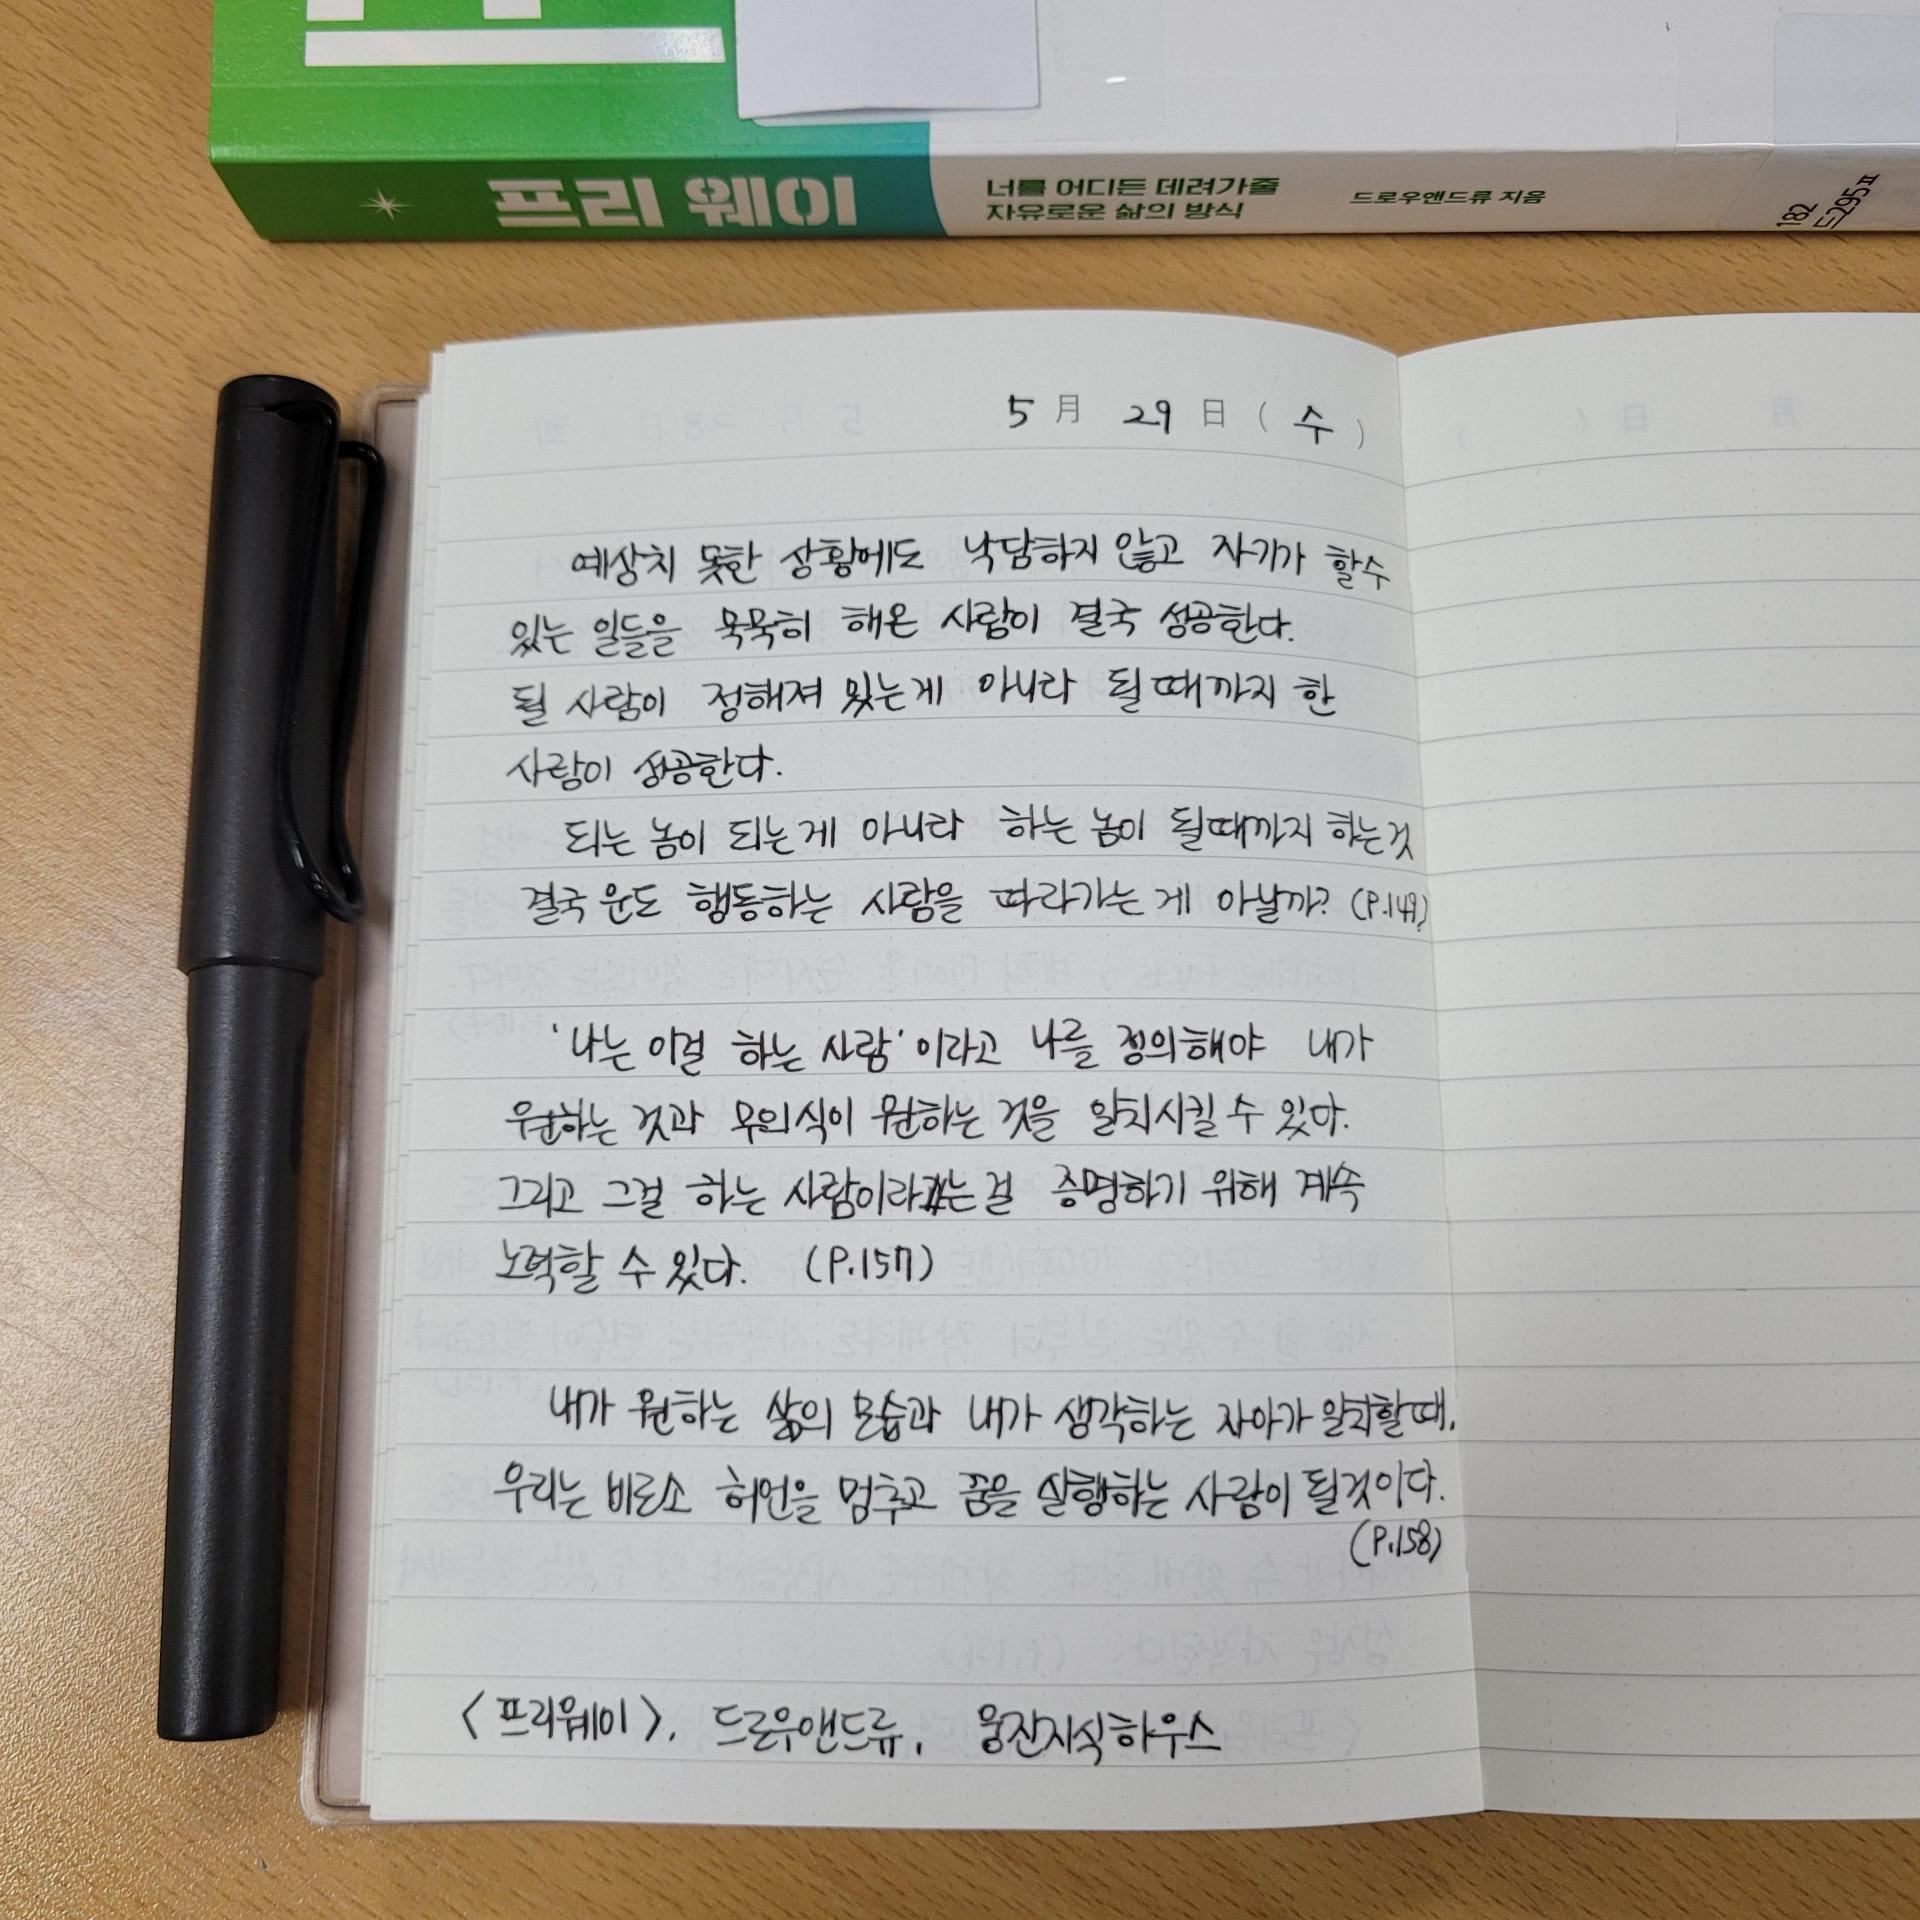 프리 웨이
너를 어디든 데려가줄
자유로운 삶의 방식
드로우앤드류 지음
182
드295ㅍ
5 月 29 日 ( 수 )
예상치 못한 상황에도 낙담하지 않고 자기가 할수
있는 일들을 묵묵히 해온 사람이 결국 성공한다.
될 사람이 정해져 있는게 아니라 될때까지 한
사람이 성공한다.
되는 놈이 되는게 아니라 하는 놈이 될때까지 하는것
결국 운도 행동하는 사람을 따라가는 게 아닐까? (P.149)
'나는 이걸 하는 사람' 이라고 나를 정의해야 내가
원하는 것과 무의식이 원하는 것을 일치시킬 수 있다.
그리고 그걸 하는 사람이라는 걸 증명하기 위해 계속
노력할 수 있다. (P.157)
내가 원하는 삶의 모습과 내가 생각하는 자아가 일치할때,
우리는 비로소 허언을 멈추고 꿈을 실행하는 사람이 될것이다.
(P.158)
<프리웨이>, 드로우앤드류, 웅진지식하우스